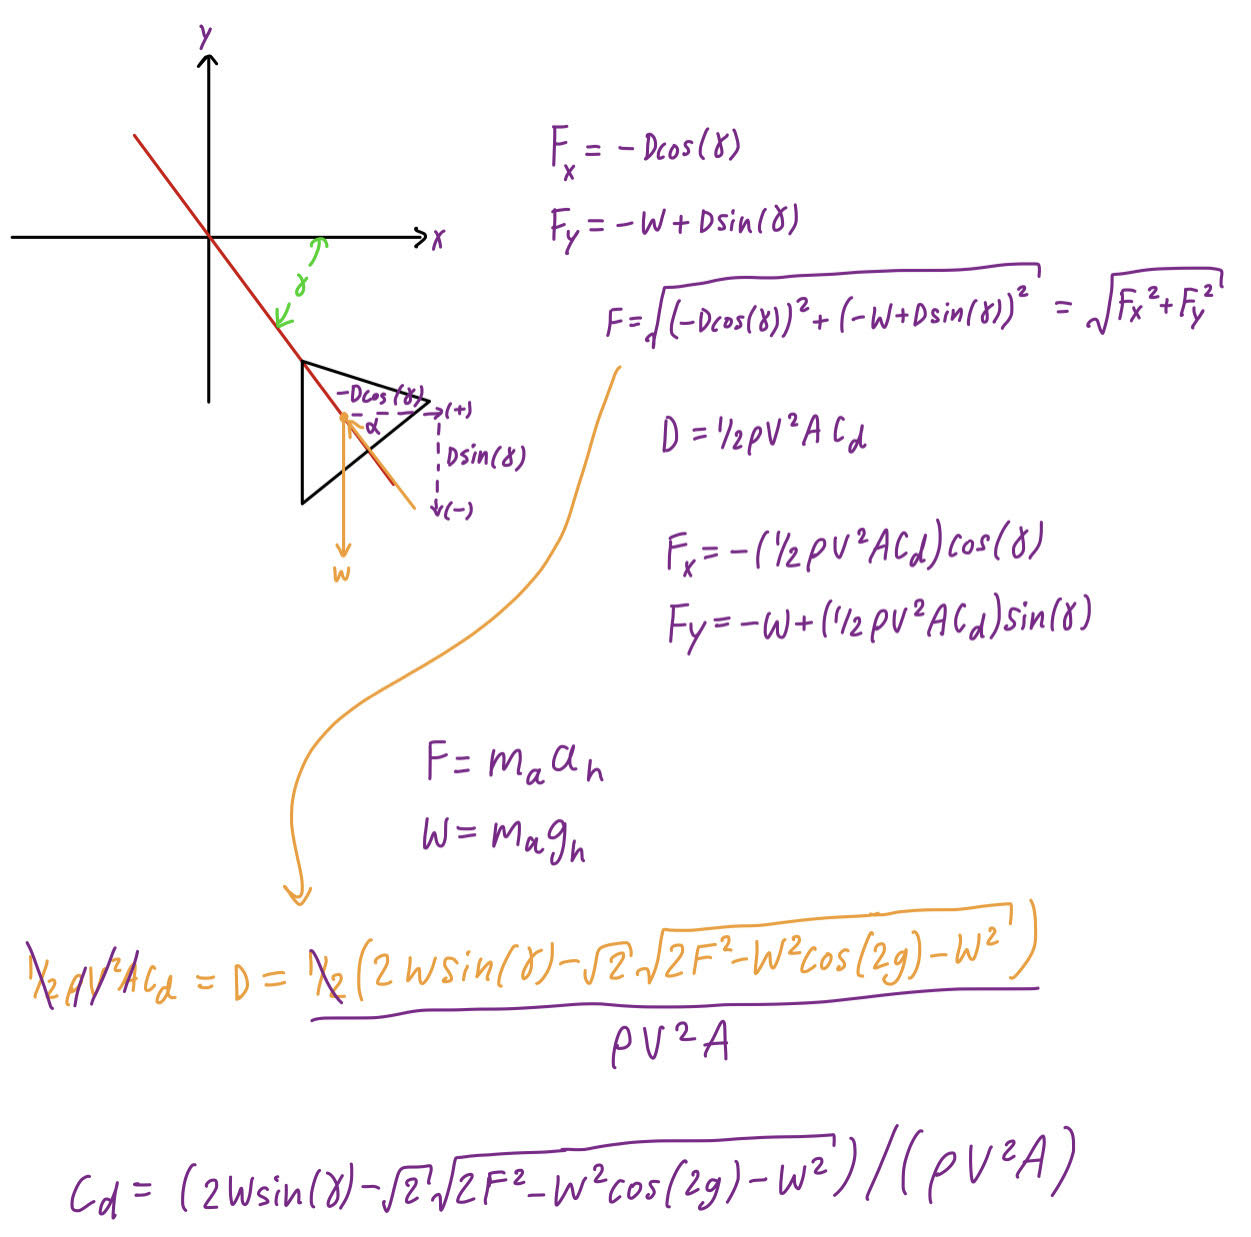 y
x
γ
-Dcos(γ)
(+)
α
Dsin(γ)
(-)
W
F_x = -Dcos(γ)
F_y = -W + Dsin(γ)
F = √((-Dcos(γ))² + (-W+Dsin(γ))²) = √(F_x² + F_y²)
D = 1/2 ρV²A C_d
F_x = -(1/2 ρV²AC_d)cos(γ)
F_y = -W + (1/2 ρV²AC_d)sin(γ)
F = m_a a_h
W = m_a g_h
1/2 ρV²AC_d = D = 1/2(2Wsin(γ) - √2 √(2F² - W²cos(2g) - W²))
ρV²A
C_d = (2Wsin(γ) - √2 √(2F² - W²cos(2g) - W²))/(ρV²A)